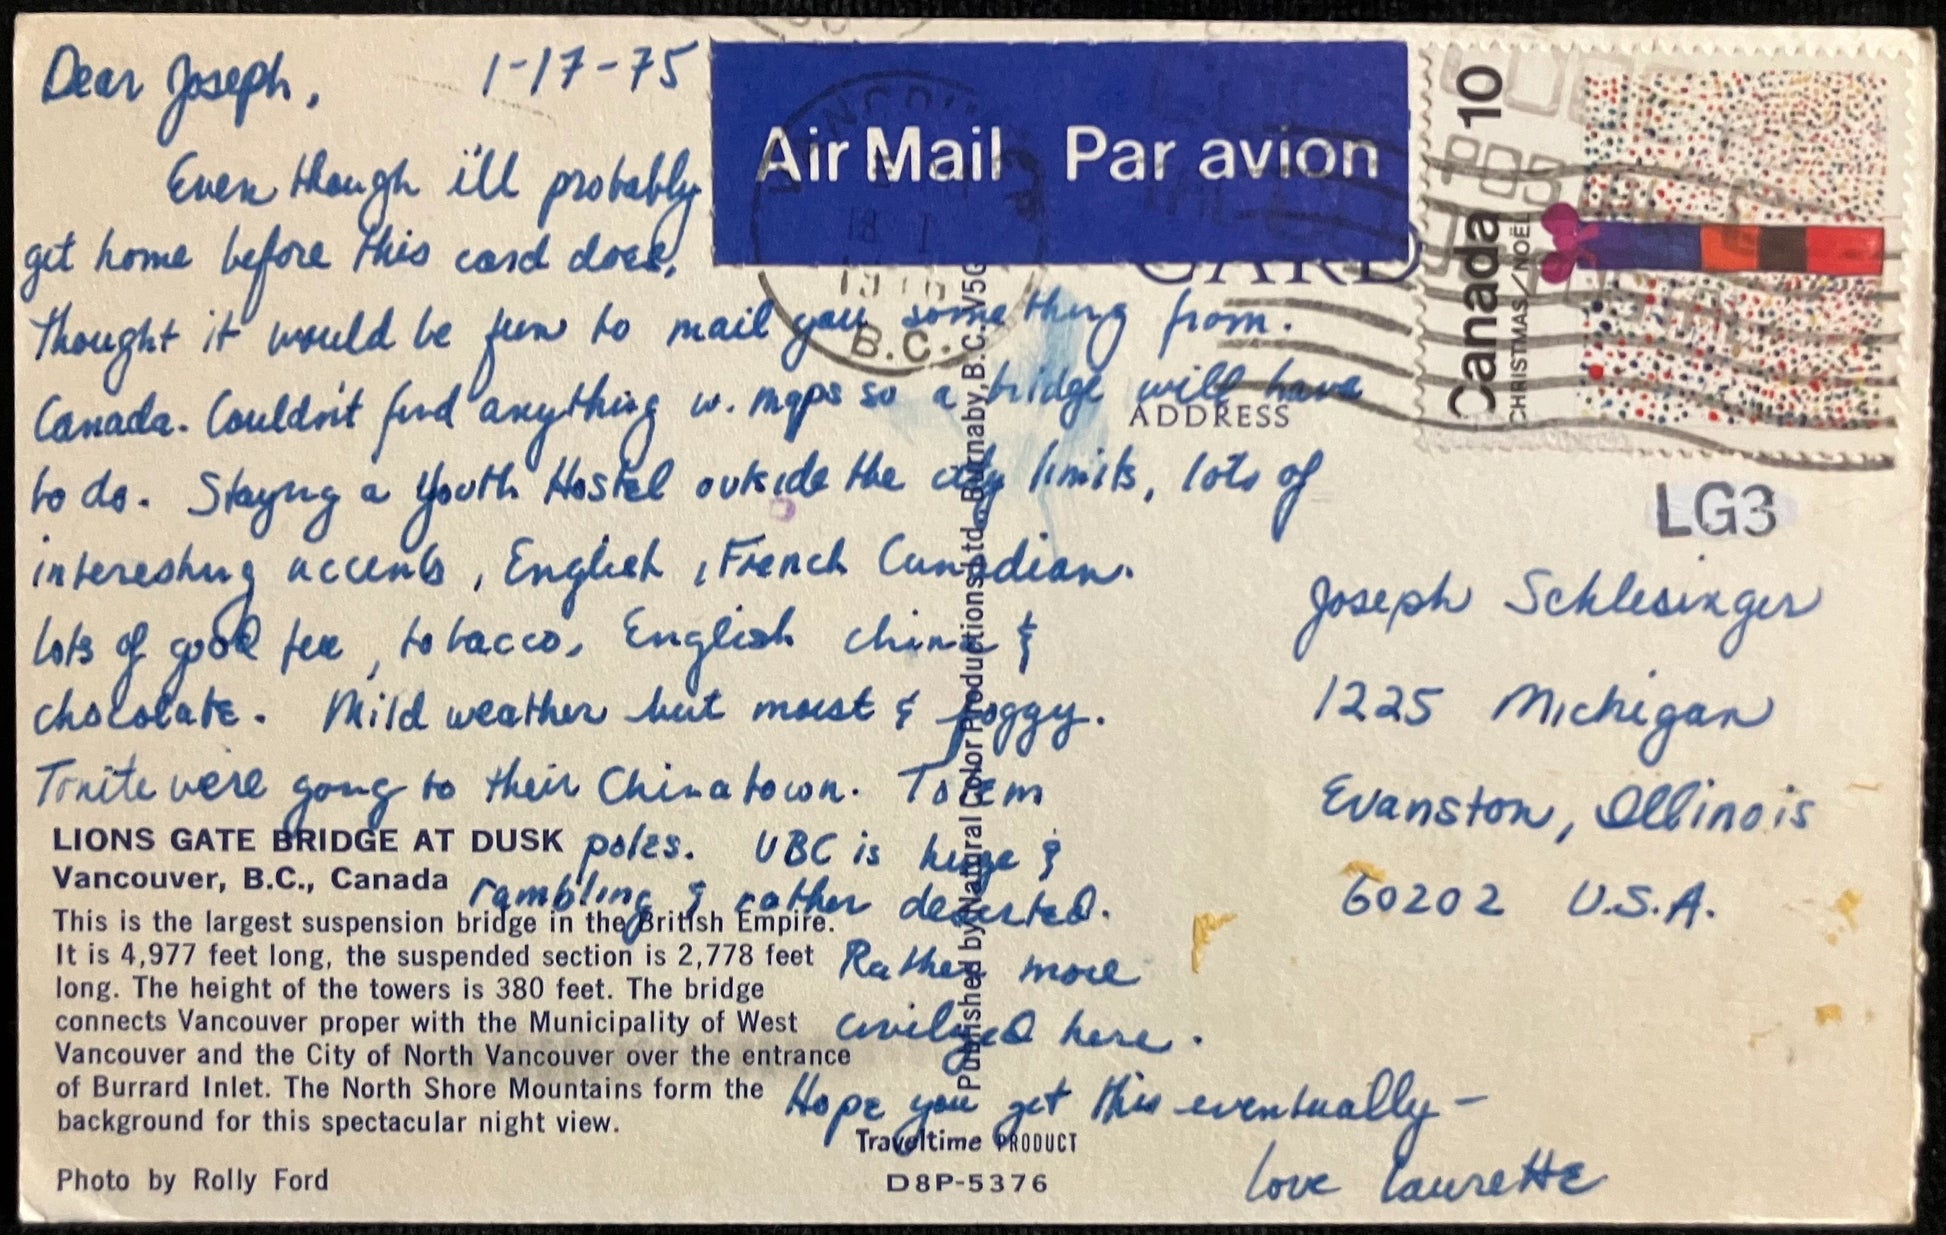 Dear Joseph, 1-17-75
Even though i'll probably
get home before this card does,
thought it would be fun to mail you something from.
Canada. Couldn't find anything w. maps so a bridge will have
to do. Stayng a Youth Hostel outside the city limits, lots of
interesting accents, English, French Canadian.
lots of good tea, tobacco, English china &
chocolate. Mild weather but moist & foggy.
Tonite we're going to their Chinatown. Totem
poles. UBC is huge &
rambling & rather deserted.
Rather more
civilized here.
Hope you get this eventually -
love Laurette
LIONS GATE BRIDGE AT DUSK
Vancouver, B.C., Canada
This is the largest suspension bridge in the British Empire.
It is 4,977 feet long, the suspended section is 2,778 feet
long. The height of the towers is 380 feet. The bridge
connects Vancouver proper with the Municipality of West
Vancouver and the City of North Vancouver over the entrance
of Burrard Inlet. The North Shore Mountains form the
background for this spectacular night view.
Photo by Rolly Ford
Traveltime PRODUCT
D8P-5376
Published by Natural Color Productions Ltd., Burnaby, B.C. V5G
Air Mail Par avion
B.C.
CARD
ADDRESS
Canada 10
CHRISTMAS/NOËL
LG3
Joseph Schlesinger
1225 Michigan
Evanston, Illinois
60202 U.S.A.